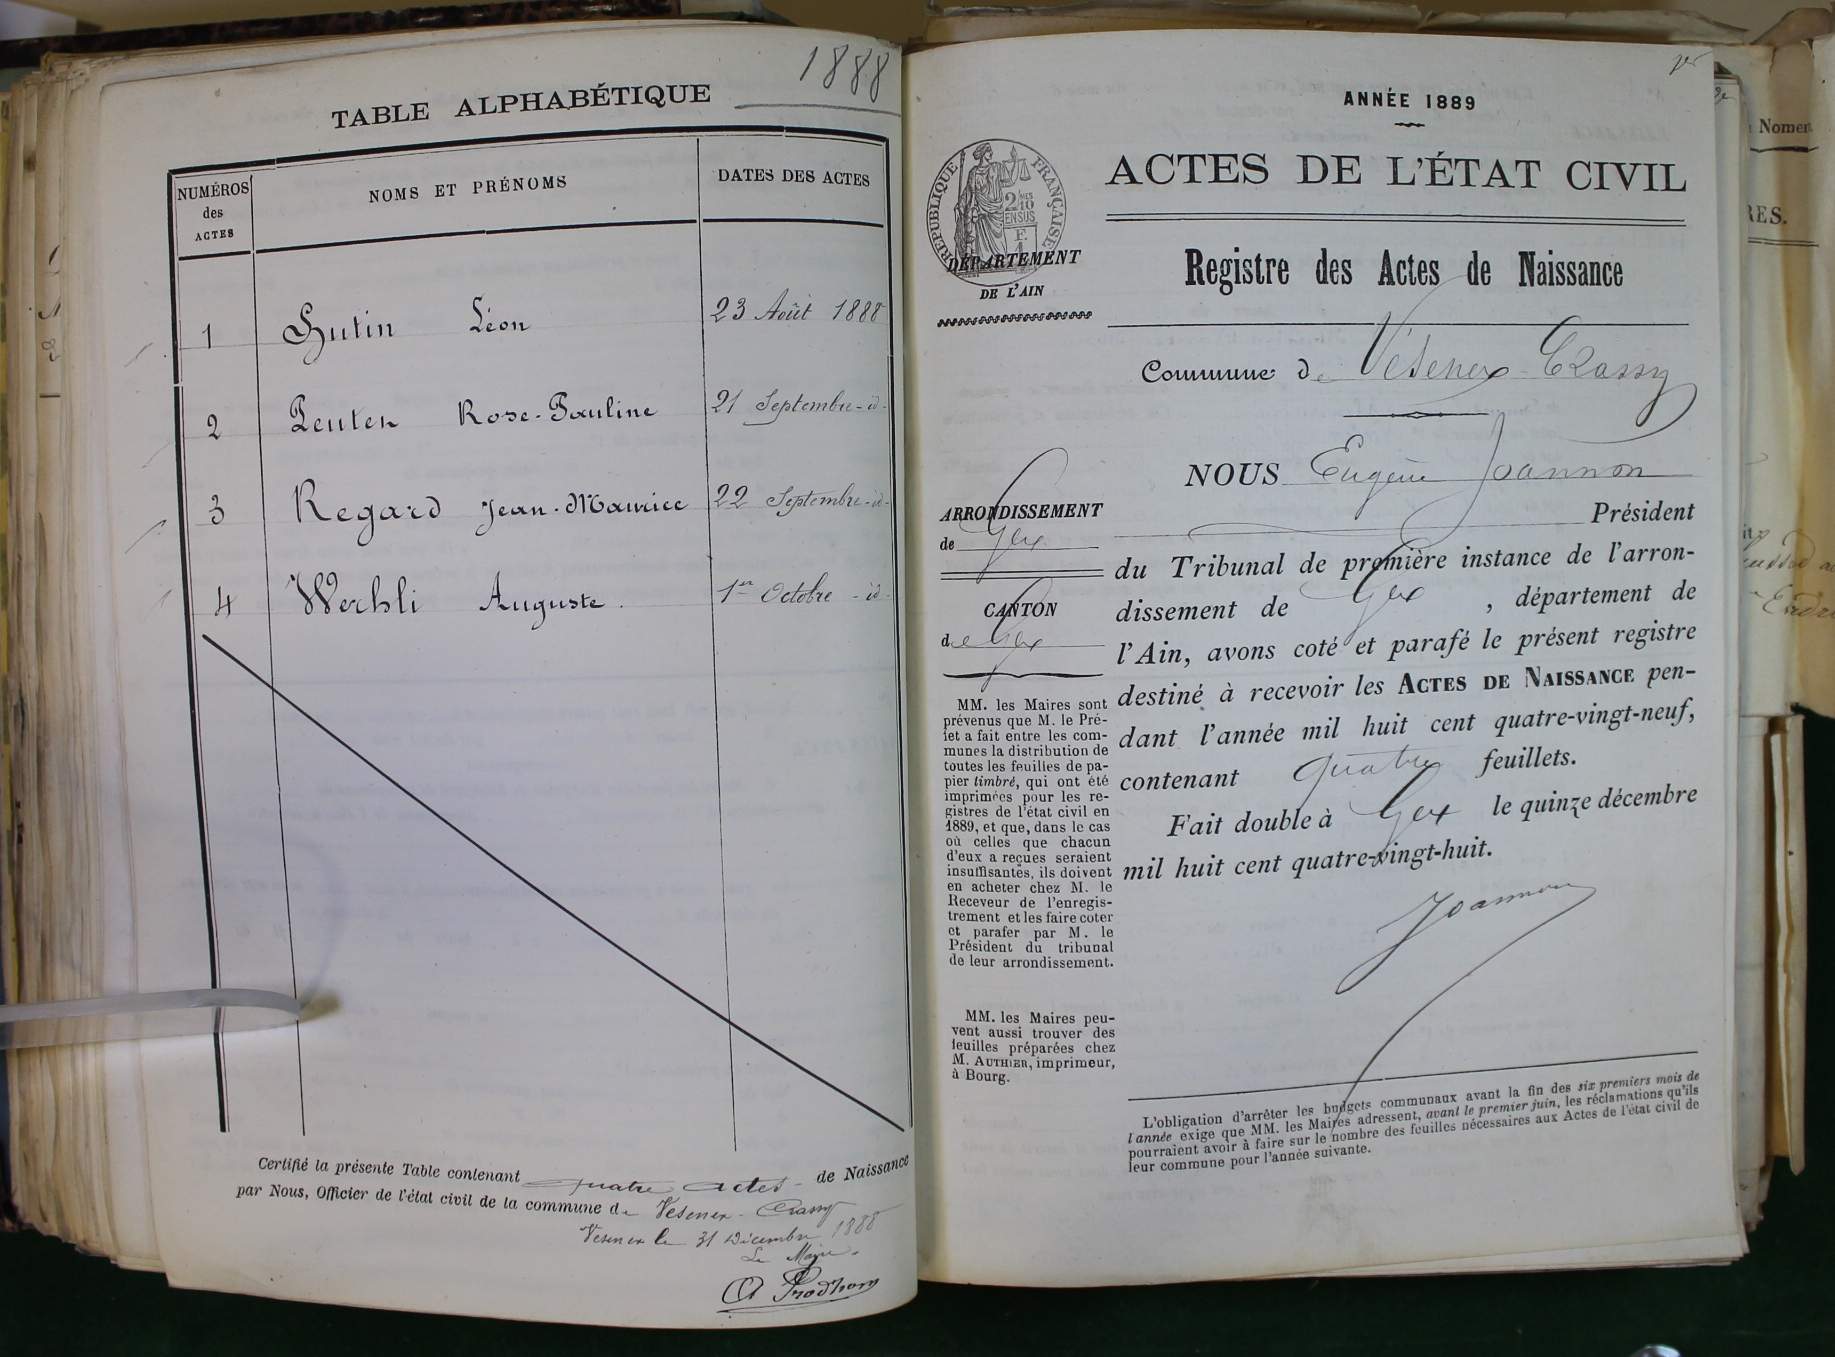 1888
TABLE ALPHABÉTIQUE
NUMÉROS des ACTES
NOMS ET PRÉNOMS
DATES DES ACTES
1 Hutin Léon 23 Août 1888
2 Peuter Rose-Pauline 21 Septembre -id-
3 Regard Jean-Maurice 22 Septembre -id-
4 Werhli Auguste. 1er Octobre -id-
Certifié la présente Table contenant quatre actes de Naissance
par Nous, Officier de l'état civil de la commune de Vesenex-Crassy
Vesenex le 31 Décembre 1888
Le Maire.
Prodhom
ANNÉE 1889
ACTES DE L'ÉTAT CIVIL
RÉPUBLIQUE FRANÇAISE
2/10
EN SUS
DÉPARTEMENT
DE L'AIN
Registre des Actes de Naissance
Commune de Vésenex-Crassy
NOUS Eugène Joannon
Président
du Tribunal de première instance de l'arron-
dissement de Gex, département de
l'Ain, avons coté et parafé le présent registre
destiné à recevoir les ACTES DE NAISSANCE pen-
dant l'année mil huit cent quatre-vingt-neuf,
contenant quatre feuillets.
Fait double à Gex le quinze décembre
mil huit cent quatre-vingt-huit.
Joannon
ARRONDISSEMENT
de Gex
CANTON
de Gex
MM. les Maires sont
prévenus que M. le Pré-
fet a fait entre les com-
munes la distribution de
toutes les feuilles de pa-
pier timbré, qui ont été
imprimées pour les re-
gistres de l'état civil en
1889, et que, dans le cas
où celles que chacun
d'eux a reçues seraient
insuffisantes, ils doivent
en acheter chez M. le
Receveur de l'enregis-
trement et les faire coter
et parafer par M. le
Président du tribunal
de leur arrondissement.
MM. les Maires peu-
vent aussi trouver des
feuilles préparées chez
M. AUTHIER, imprimeur,
à Bourg.
L'obligation d'arrêter les budgets communaux avant la fin des six premiers mois de
l'année exige que MM. les Maires adressent, avant le premier juin, les réclamations qu'ils
pourraient avoir à faire sur le nombre des feuilles nécessaires aux Actes de l'état civil de
leur commune pour l'année suivante.
Nomen
RES.